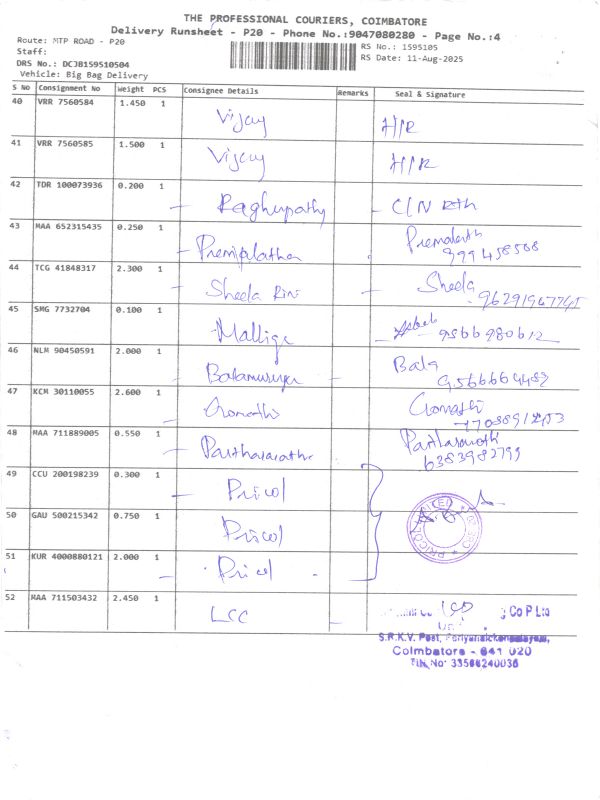 THE PROFESSIONAL COURIERS, COIMBATORE
Delivery Runsheet - P20 - Phone No.:9047080280 - Page No.:4
Route: MTP ROAD - P20
RS No.: 1595105
Staff:
RS Date: 11-Aug-2025
DRS No.: DCJ8159510504
Vehicle: Big Bag Delivery
S No Consignment No Weight PCS Consignee Details Remarks Seal & Signature
40 VRR 7560584 1.450 1 Vijay H/R
41 VRR 7560585 1.500 1 Vijay H/R
42 TDR 100073936 0.200 1 Raghupathy C/N
43 MAA 652315435 0.250 1 Premalatha
44 TCG 41848317 2.300 1 Sheela Rini Sheela
96291947745
45 SMG 7732704 0.100 1 Malliga
9566980612
46 NLM 90450591 2.000 1 Balamuruga Bala
47 KCM 30110055 2.600 1 Gomathi Gomathi
48 MAA 711889005 0.550 1 Parthasarathi Parthasarathi
6383982799
49 CCU 200198239 0.300 1 Pricol
50 GAU 500215342 0.750 1 Pricol
PRICOL LIMITED
51 KUR 4000880121 2.000 1 Pricol
52 MAA 711503432 2.450 1 LCC
g Co P Ltd
S.R.K.V. Post, Periyanaickenpalayam,
Coimbatore - 641 020
TIN No: 33566240036